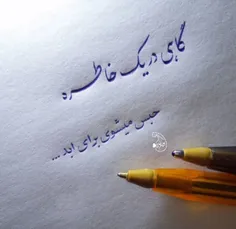 گاهی در یک خاطره
حبس میشوی برای ابد ...